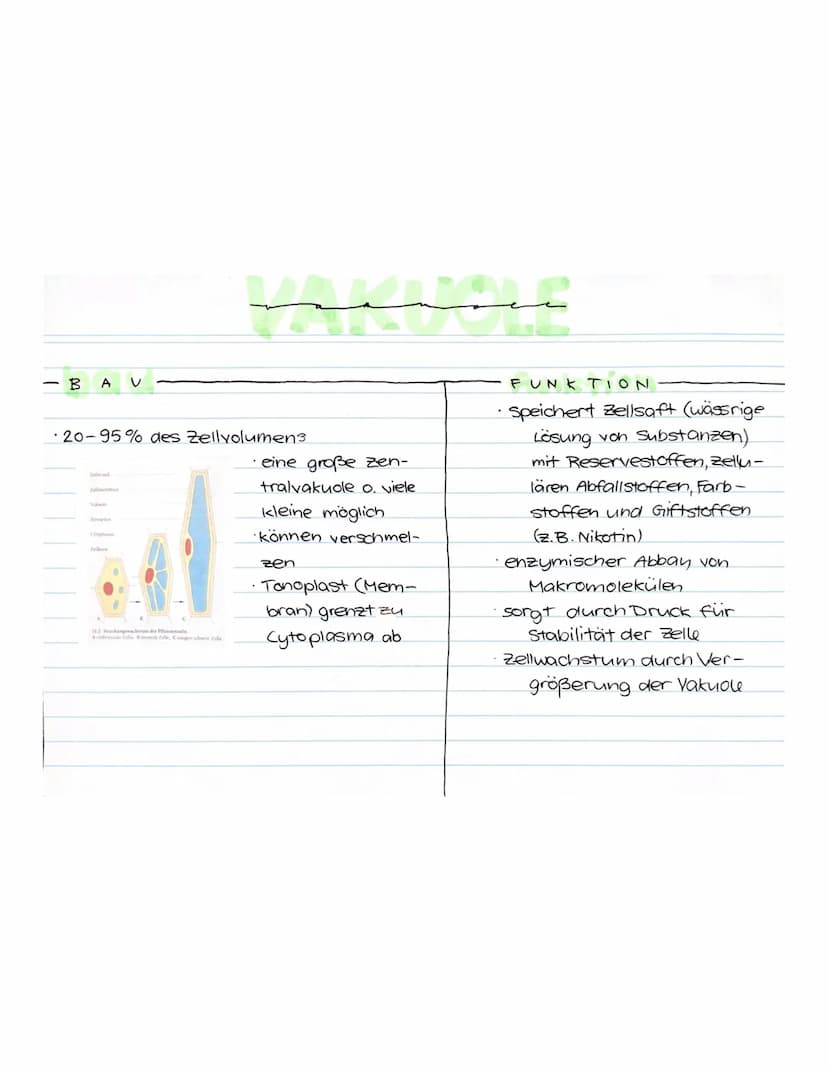 VAKUOLE
BAU
· 20-95% des Zellvolumens
· eine große Zen-
tralvakuole o. viele
kleine möglich
· können verschmel-
zen
· Tonoplast (Mem-
bran) grenzt zu
Cytoplasma ab
FUNKTION
· speichert Zellsaft (wässrige
Lösung von Substanzen)
mit Reservestoffen, zellu-
lären Abfallstoffen, Farb-
stoffen und Giftstoffen
(z.B. Nikotin)
· enzymischer Abbau von
Makromolekülen
· sorgt durch Druck für
Stabilität der Zelle
· Zellwachstum durch Ver-
größerung der Vakuole
Zellwand
Vakuole
Zellkern
A B C